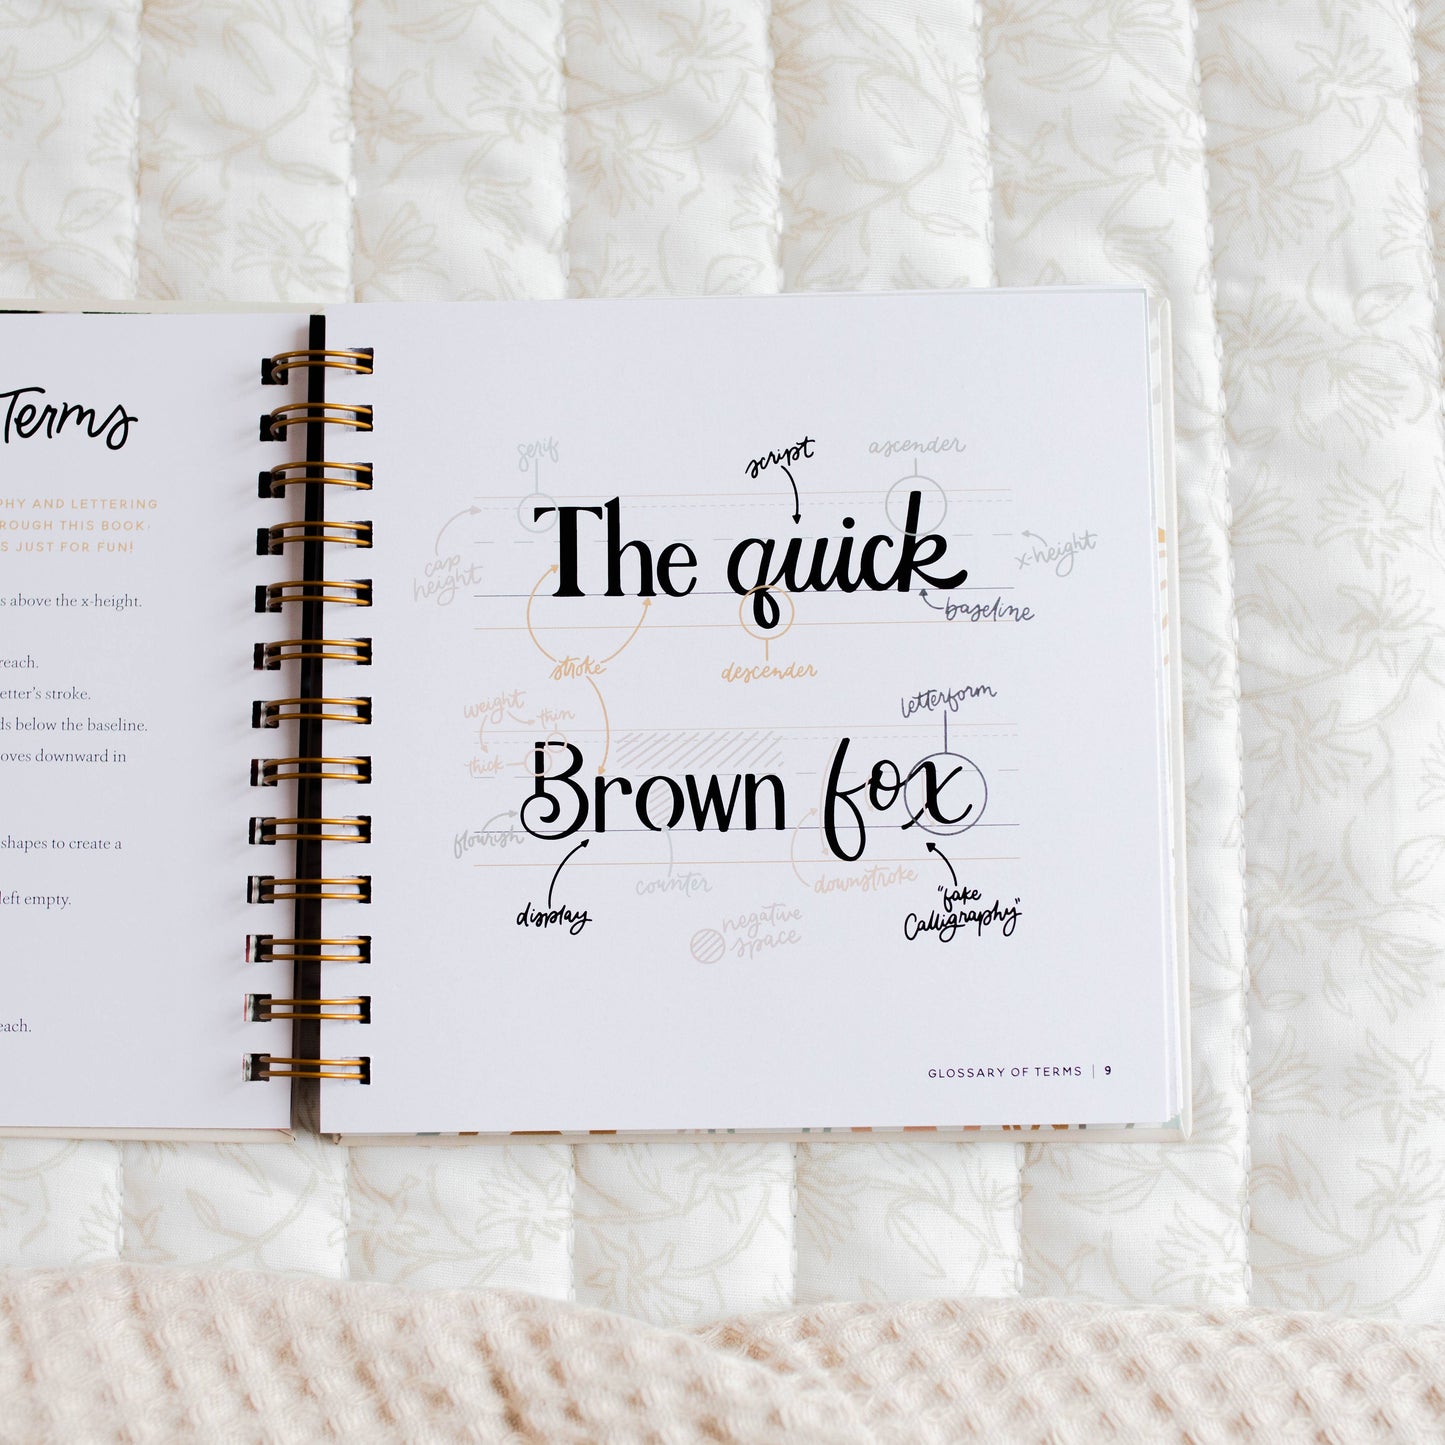 Terms
PHY AND LETTERING
ROUGH THIS BOOK,
S JUST FOR FUN!
s above the x-height.
reach.
etter's stroke.
ds below the baseline.
oves downward in
shapes to create a
left empty.
each.
serif
script
ascender
The quick
cap
height
x-height
baseline
stroke
descender
weight
thin
letterform
thick
Brown fox
flourish
counter
downstroke
display
negative
space
"fake
Calligraphy"
GLOSSARY OF TERMS | 9